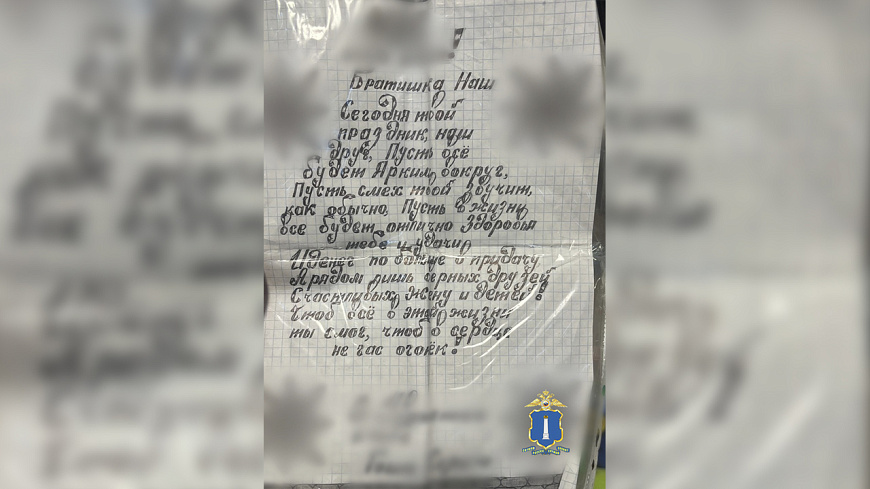 !
Братишка Наш
Сегодня твой
праздник, наш
друг, Пусть всё
будет Ярким вокруг,
Пусть смех твой звучит,
как обычно, Пусть в жизни
все будет отлично Здоровья
тебе и удачи,
И денег по больше в придачу
А рядом лишь верных друзей
Счастливых, жену и детей!
Чтоб всё в этой жизни
ты смог, чтоб в сердце
не гас огоёк!